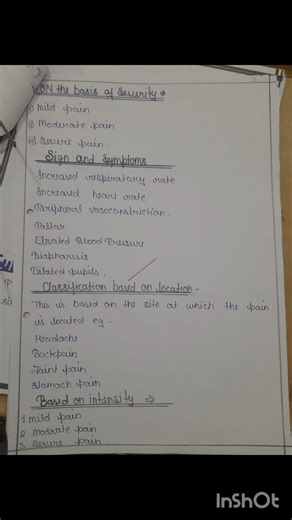 ON the basis of Security
i) Mild pain
ii) Moderate pain
iii) Secure pain.
Sign and Symptoms
Increased respiratory rate
Increased heart rate
Peripheral vasoconstriction.
Pallar
Elevated Blood Pressure
Diaphorusis
Dilated pupils.
Classification based on location -
This is based on the site at which the pain
is located eg -
Headache
Backpain
Joint pain
Stomach pain
Based on intensity ⇒
1 Mild pain
2 Modrate pain
3 Secure pain.
InShOt